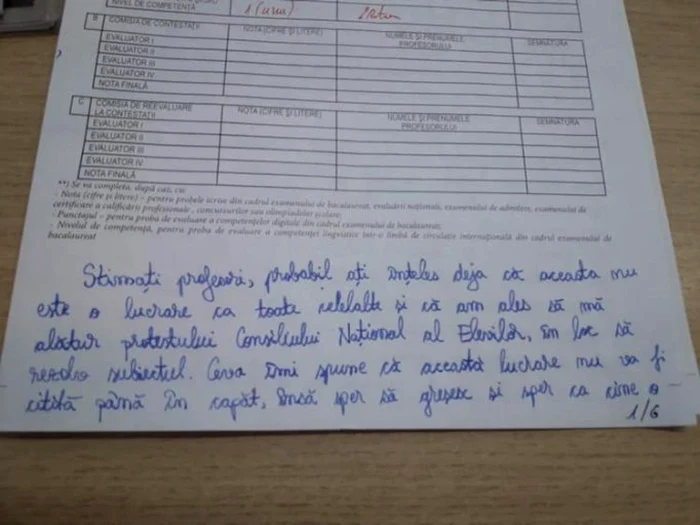 NIVEL DE COMPETENȚĂ 1 (unu)
B COMISIA DE CONTESTAȚII NOTA (CIFRE ȘI LITERE) NUMELE ȘI PRENUMELE PROFESORULUI SEMNĂTURA
EVALUATOR I
EVALUATOR II
EVALUATOR III
EVALUATOR IV
NOTA FINALĂ
C COMISIA DE REEVALUARE LA CONTESTAȚII NOTA (CIFRE ȘI LITERE) NUMELE ȘI PRENUMELE PROFESORULUI SEMNĂTURA
EVALUATOR I
EVALUATOR II
EVALUATOR III
EVALUATOR IV
NOTA FINALĂ
**) Se va completa, după caz, cu:
- Nota (cifre și litere) - pentru probele scrise din cadrul examenului de bacalaureat, evaluării naționale, examenului de admitere, examenului de
certificare a calificării profesionale, concursurilor sau olimpiadelor școlare;
- Punctajul - pentru proba de evaluare a competențelor digitale din cadrul examenului de bacalaureat;
- Nivelul de competență, pentru proba de evaluare a competenței lingvistice într-o limbă de circulație internațională din cadrul examenului de
bacalaureat
Stimați profesori, probabil ați înțeles deja că aceasta nu
este o lucrare ca toate celelalte și că am ales să mă
alătur protestului Consiliului Național al Elevilor, în loc să
rezolv subiectul. Ceva îmi spune că această lucrare nu va fi
citită până în capăt, însă sper să greșesc și sper ca cine o
1/6